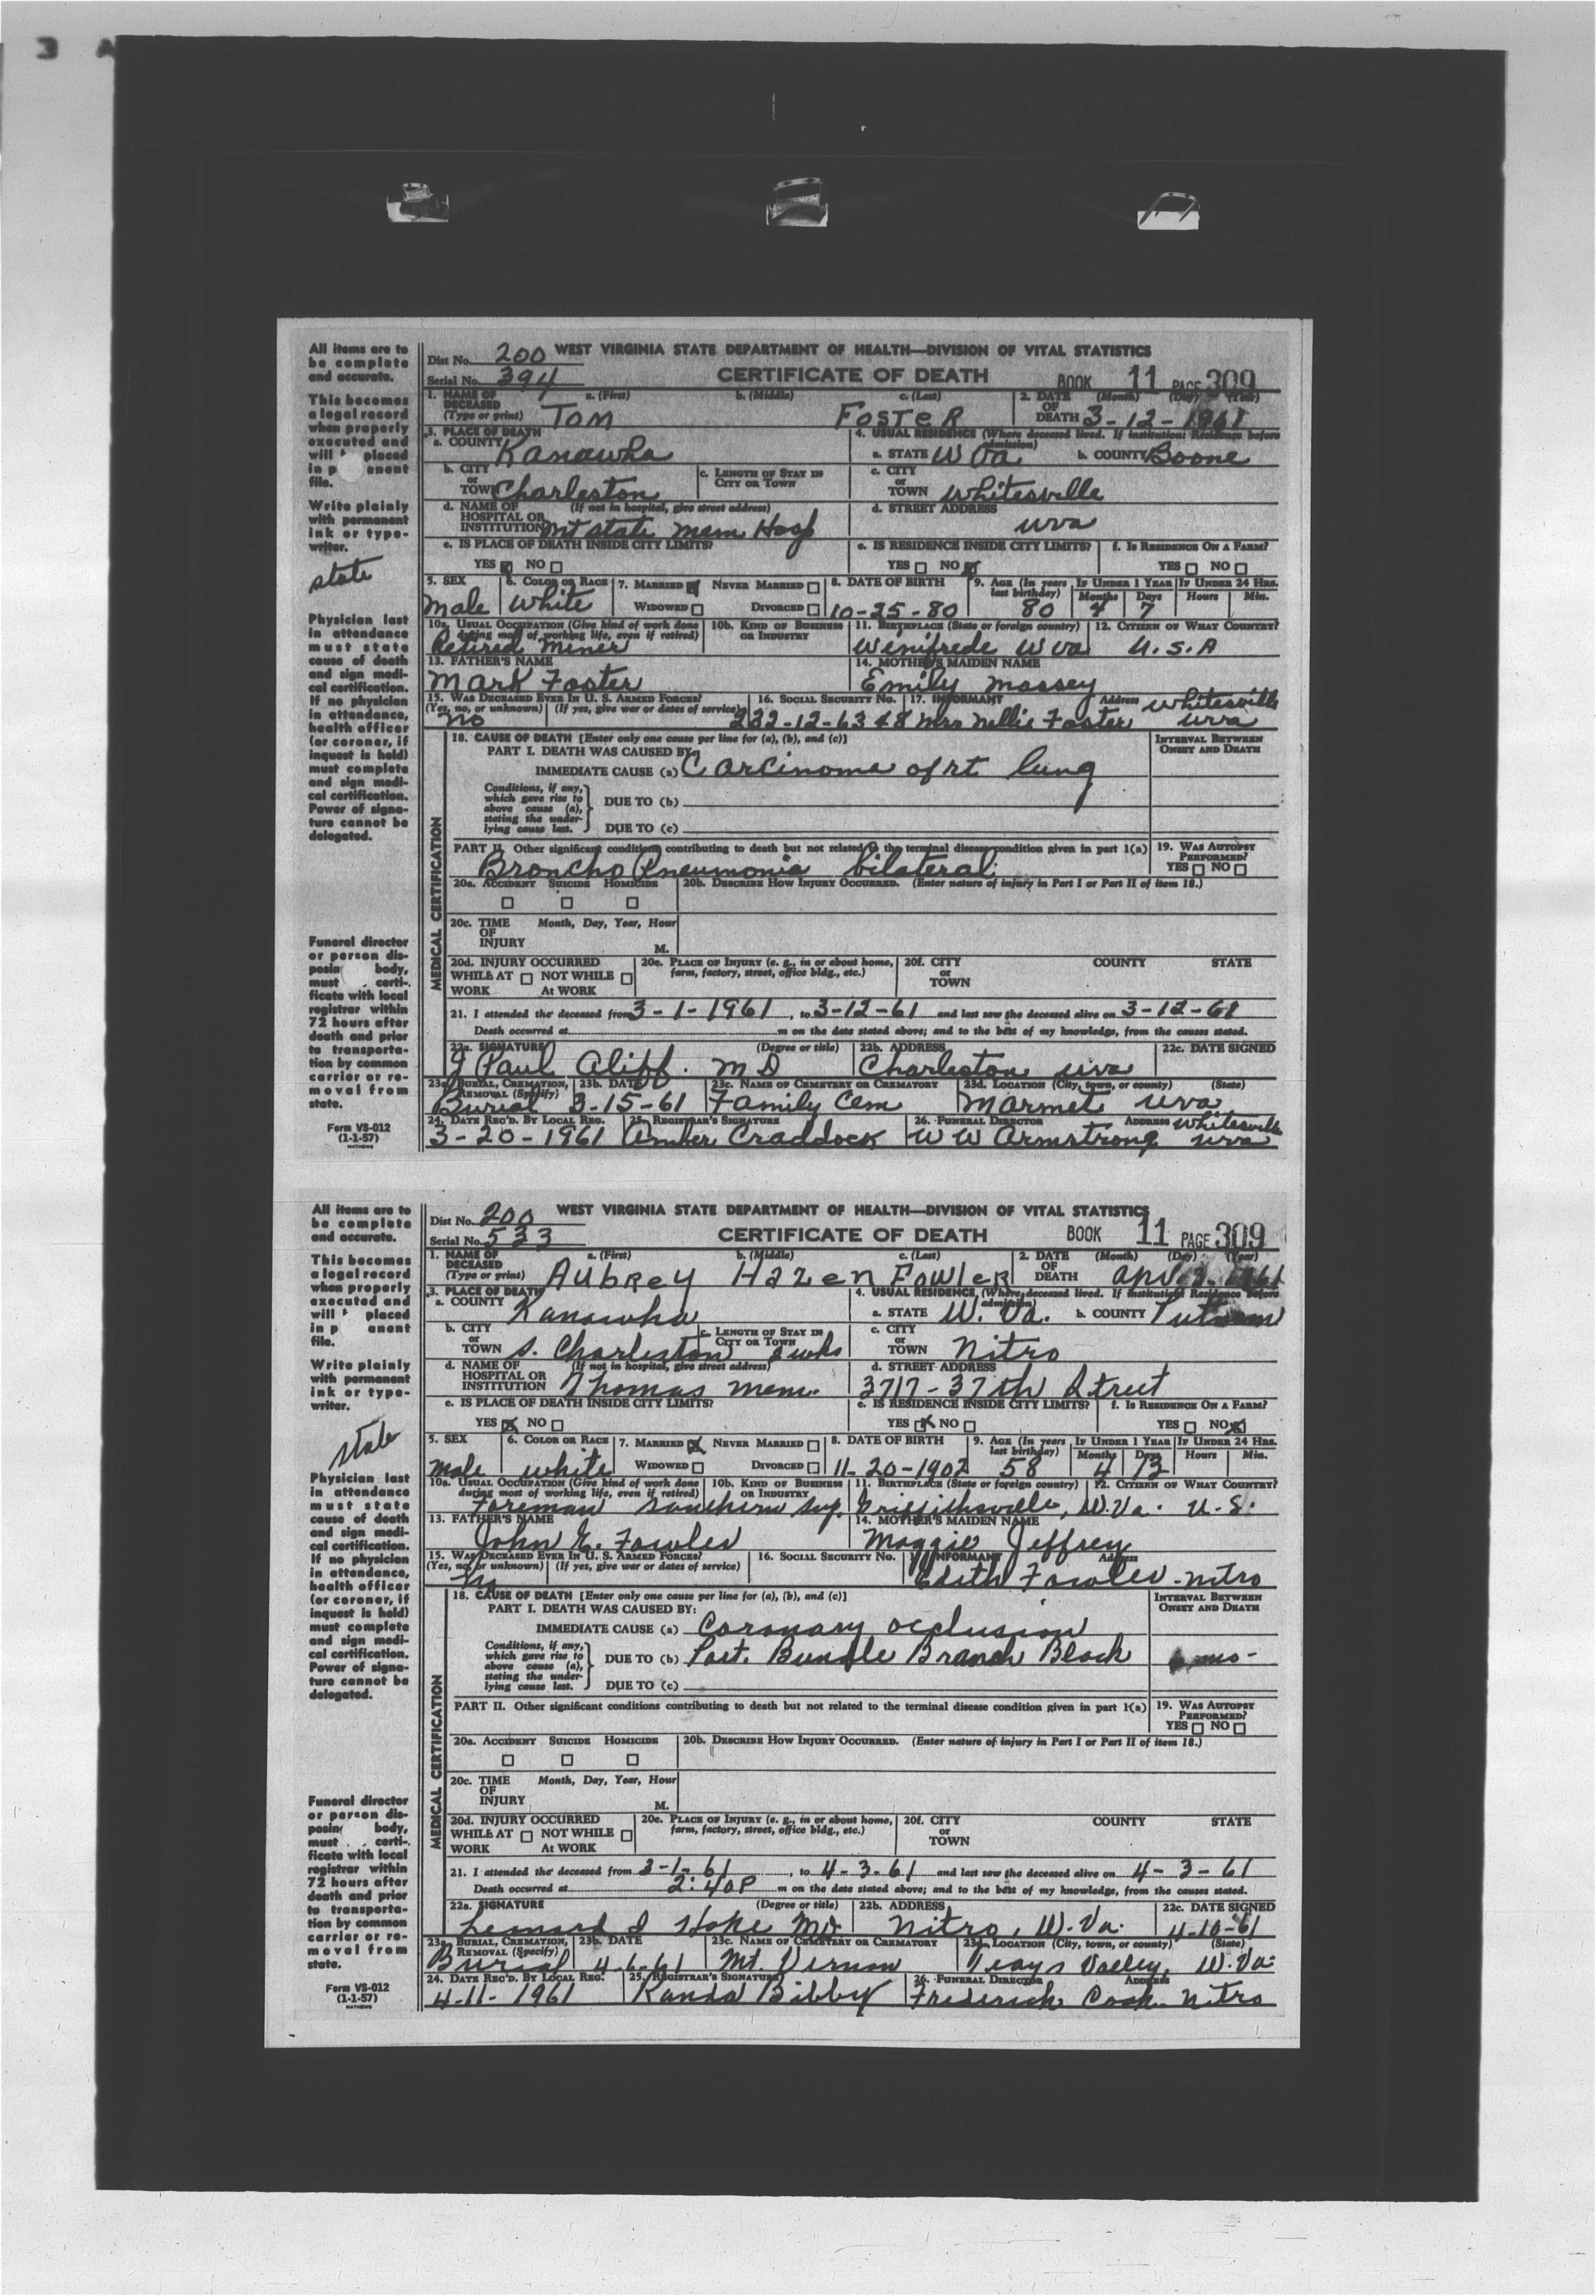 3 A
All items are to
be complete
and accurate.
This becomes
a legal record
when properly
executed and
will placed
in p anent
file.
Write plainly
with permanent
ink or type-
writer.
state
Physician last
in attendance
must state
cause of death
and sign medi-
cal certification.
If no physician
in attendance,
health officer
(or coroner, if
inquest is held)
must complete
and sign medi-
cal certification.
Power of signa-
ture cannot be
delegated.
Funeral director
or person dis-
posin body,
must certi-
ficate with local
registrar within
72 hours after
death and prior
to transporta-
tion by common
carrier or re-
moval from
state.
Form VS-012
(1-1-57)
MATHEWS
Dist No. 200 WEST VIRGINIA STATE DEPARTMENT OF HEALTH—DIVISION OF VITAL STATISTICS
Serial No. 394 CERTIFICATE OF DEATH BOOK 11 PAGE 309
1. NAME OF DECEASED (Type or print) a. (First) b. (Middle) c. (Last) 2. DATE OF DEATH (Month) (Day) (Year)
TOM FOSTER 3-12-1961
3. PLACE OF DEATH 4. USUAL RESIDENCE (Where deceased lived. If institution: Residence before admission)
a. COUNTY Kanawha a. STATE W Va b. COUNTY Boone
b. CITY or TOWN Charleston c. LENGTH OF STAY IN CITY OR TOWN c. CITY or TOWN Whitesville
d. NAME OF HOSPITAL OR INSTITUTION (If not in hospital, give street address) Mt state Mem Hosp d. STREET ADDRESS wva
e. IS PLACE OF DEATH INSIDE CITY LIMITS? e. IS RESIDENCE INSIDE CITY LIMITS? f. IS RESIDENCE ON A FARM?
YES NO YES NO YES NO
5. SEX 6. COLOR OR RACE 7. MARRIED NEVER MARRIED 8. DATE OF BIRTH 9. AGE (In years last birthday) IF UNDER 1 YEAR IF UNDER 24 HRS.
Months Days Hours Min.
Male White WIDOWED DIVORCED 10-25-80 80 4 7
10a. USUAL OCCUPATION (Give kind of work done during most of working life, even if retired) 10b. KIND OF BUSINESS OR INDUSTRY 11. BIRTHPLACE (State or foreign country) 12. CITIZEN OF WHAT COUNTRY?
Retired Miner Winifrede W Va U.S.A
13. FATHER'S NAME 14. MOTHER'S MAIDEN NAME
Mark Foster Emily Massey
15. WAS DECEASED EVER IN U. S. ARMED FORCES? 16. SOCIAL SECURITY NO. 17. INFORMANT Address Whitesville
(Yes, no, or unknown) (If yes, give war or dates of service)
no 232-12-6348 Mrs Nellie Foster wva
MEDICAL CERTIFICATION
18. CAUSE OF DEATH [Enter only one cause per line for (a), (b), and (c)] INTERVAL BETWEEN ONSET AND DEATH
PART I. DEATH WAS CAUSED BY:
IMMEDIATE CAUSE (a) Carcinoma of rt lung
Conditions, if any, which gave rise to above cause (a), stating the under- lying cause last.
DUE TO (b)
DUE TO (c)
PART II. Other significant conditions contributing to death but not related to the terminal disease condition given in part 1(a) 19. WAS AUTOPSY PERFORMED?
Broncho Pneumonia bilateral YES NO
20a. ACCIDENT SUICIDE HOMICIDE 20b. DESCRIBE HOW INJURY OCCURRED. (Enter nature of injury in Part I or Part II of item 18.)
20c. TIME OF INJURY Month, Day, Year, Hour M.
20d. INJURY OCCURRED 20e. PLACE OF INJURY (e. g., in or about home, farm, factory, street, office bldg., etc.) 20f. CITY or TOWN COUNTY STATE
WHILE AT WORK NOT WHILE AT WORK
21. I attended the deceased from 3-1-1961, to 3-12-61 and last saw the deceased alive on 3-12-61
Death occurred at m on the date stated above; and to the best of my knowledge, from the causes stated.
22a. SIGNATURE (Degree or title) 22b. ADDRESS 22c. DATE SIGNED
J Paul Aliff. MD Charleston wva
23a. BURIAL, CREMATION, REMOVAL (Specify) 23b. DATE 23c. NAME OF CEMETERY OR CREMATORY 23d. LOCATION (City, town, or county) (State)
Burial 3-15-61 Family Cem Marmet wva
24. DATE REC'D. BY LOCAL REG. 25. REGISTRAR'S SIGNATURE 26. FUNERAL DIRECTOR ADDRESS Whitesville
3-20-1961 Amber Craddock W W Armstrong wva
All items are to
be complete
and accurate.
This becomes
a legal record
when properly
executed and
will placed
in p anent
file.
Write plainly
with permanent
ink or type-
writer.
state
Physician last
in attendance
must state
cause of death
and sign medi-
cal certification.
If no physician
in attendance,
health officer
(or coroner, if
inquest is held)
must complete
and sign medi-
cal certification.
Power of signa-
ture cannot be
delegated.
Funeral director
or person dis-
posin body,
must certi-
ficate with local
registrar within
72 hours after
death and prior
to transporta-
tion by common
carrier or re-
moval from
state.
Form VS-012
(1-1-57)
MATHEWS
Dist No. 200 WEST VIRGINIA STATE DEPARTMENT OF HEALTH—DIVISION OF VITAL STATISTICS
Serial No. 533 CERTIFICATE OF DEATH BOOK 11 PAGE 309
1. NAME OF DECEASED (Type or print) a. (First) b. (Middle) c. (Last) 2. DATE OF DEATH (Month) (Day) (Year)
Aubrey Hazen Fowler Apr 3, 1961
3. PLACE OF DEATH 4. USUAL RESIDENCE (Where deceased lived. If institution: Residence before admission)
a. COUNTY Kanawha a. STATE W. Va. b. COUNTY Putnam
b. CITY or TOWN S. Charleston c. LENGTH OF STAY IN CITY OR TOWN 2 wks c. CITY or TOWN Nitro
d. NAME OF HOSPITAL OR INSTITUTION (If not in hospital, give street address) Thomas Mem. d. STREET ADDRESS 3717-37th Street
e. IS PLACE OF DEATH INSIDE CITY LIMITS? e. IS RESIDENCE INSIDE CITY LIMITS? f. IS RESIDENCE ON A FARM?
YES NO YES NO YES NO
5. SEX 6. COLOR OR RACE 7. MARRIED NEVER MARRIED 8. DATE OF BIRTH 9. AGE (In years last birthday) IF UNDER 1 YEAR IF UNDER 24 HRS.
Months Days Hours Min.
Male white WIDOWED DIVORCED 11-20-1902 58 4 13
10a. USUAL OCCUPATION (Give kind of work done during most of working life, even if retired) 10b. KIND OF BUSINESS OR INDUSTRY 11. BIRTHPLACE (State or foreign country) 12. CITIZEN OF WHAT COUNTRY?
Foreman Southern Griffithsville, W.Va. U.S.
13. FATHER'S NAME 14. MOTHER'S MAIDEN NAME
John E. Fowler Maggie Jeffrey
15. WAS DECEASED EVER IN U. S. ARMED FORCES? 16. SOCIAL SECURITY NO. 17. INFORMANT Address
(Yes, no, or unknown) (If yes, give war or dates of service)
no Edith Fowler - Nitro
MEDICAL CERTIFICATION
18. CAUSE OF DEATH [Enter only one cause per line for (a), (b), and (c)] INTERVAL BETWEEN ONSET AND DEATH
PART I. DEATH WAS CAUSED BY:
IMMEDIATE CAUSE (a) Coronary occlusion
Conditions, if any, which gave rise to above cause (a), stating the under- lying cause last.
DUE TO (b) Post. Bundle Branch Block mo-
DUE TO (c)
PART II. Other significant conditions contributing to death but not related to the terminal disease condition given in part 1(a) 19. WAS AUTOPSY PERFORMED?
YES NO
20a. ACCIDENT SUICIDE HOMICIDE 20b. DESCRIBE HOW INJURY OCCURRED. (Enter nature of injury in Part I or Part II of item 18.)
20c. TIME OF INJURY Month, Day, Year, Hour M.
20d. INJURY OCCURRED 20e. PLACE OF INJURY (e. g., in or about home, farm, factory, street, office bldg., etc.) 20f. CITY or TOWN COUNTY STATE
WHILE AT WORK NOT WHILE AT WORK
21. I attended the deceased from 3-1-61, to 4-3-61 and last saw the deceased alive on 4-3-61
Death occurred at 2:40P m on the date stated above; and to the best of my knowledge, from the causes stated.
22a. SIGNATURE (Degree or title) 22b. ADDRESS 22c. DATE SIGNED
Leonard I Hoke MD. Nitro, W.Va. 4-10-61
23a. BURIAL, CREMATION, REMOVAL (Specify) 23b. DATE 23c. NAME OF CEMETERY OR CREMATORY 23d. LOCATION (City, town, or county) (State)
Burial 4-6-61 Mt. Vernon Teays Valley, W.Va.
24. DATE REC'D. BY LOCAL REG. 25. REGISTRAR'S SIGNATURE 26. FUNERAL DIRECTOR ADDRESS
4-11-1961 Kanda Bibby Frederick Cook Nitro